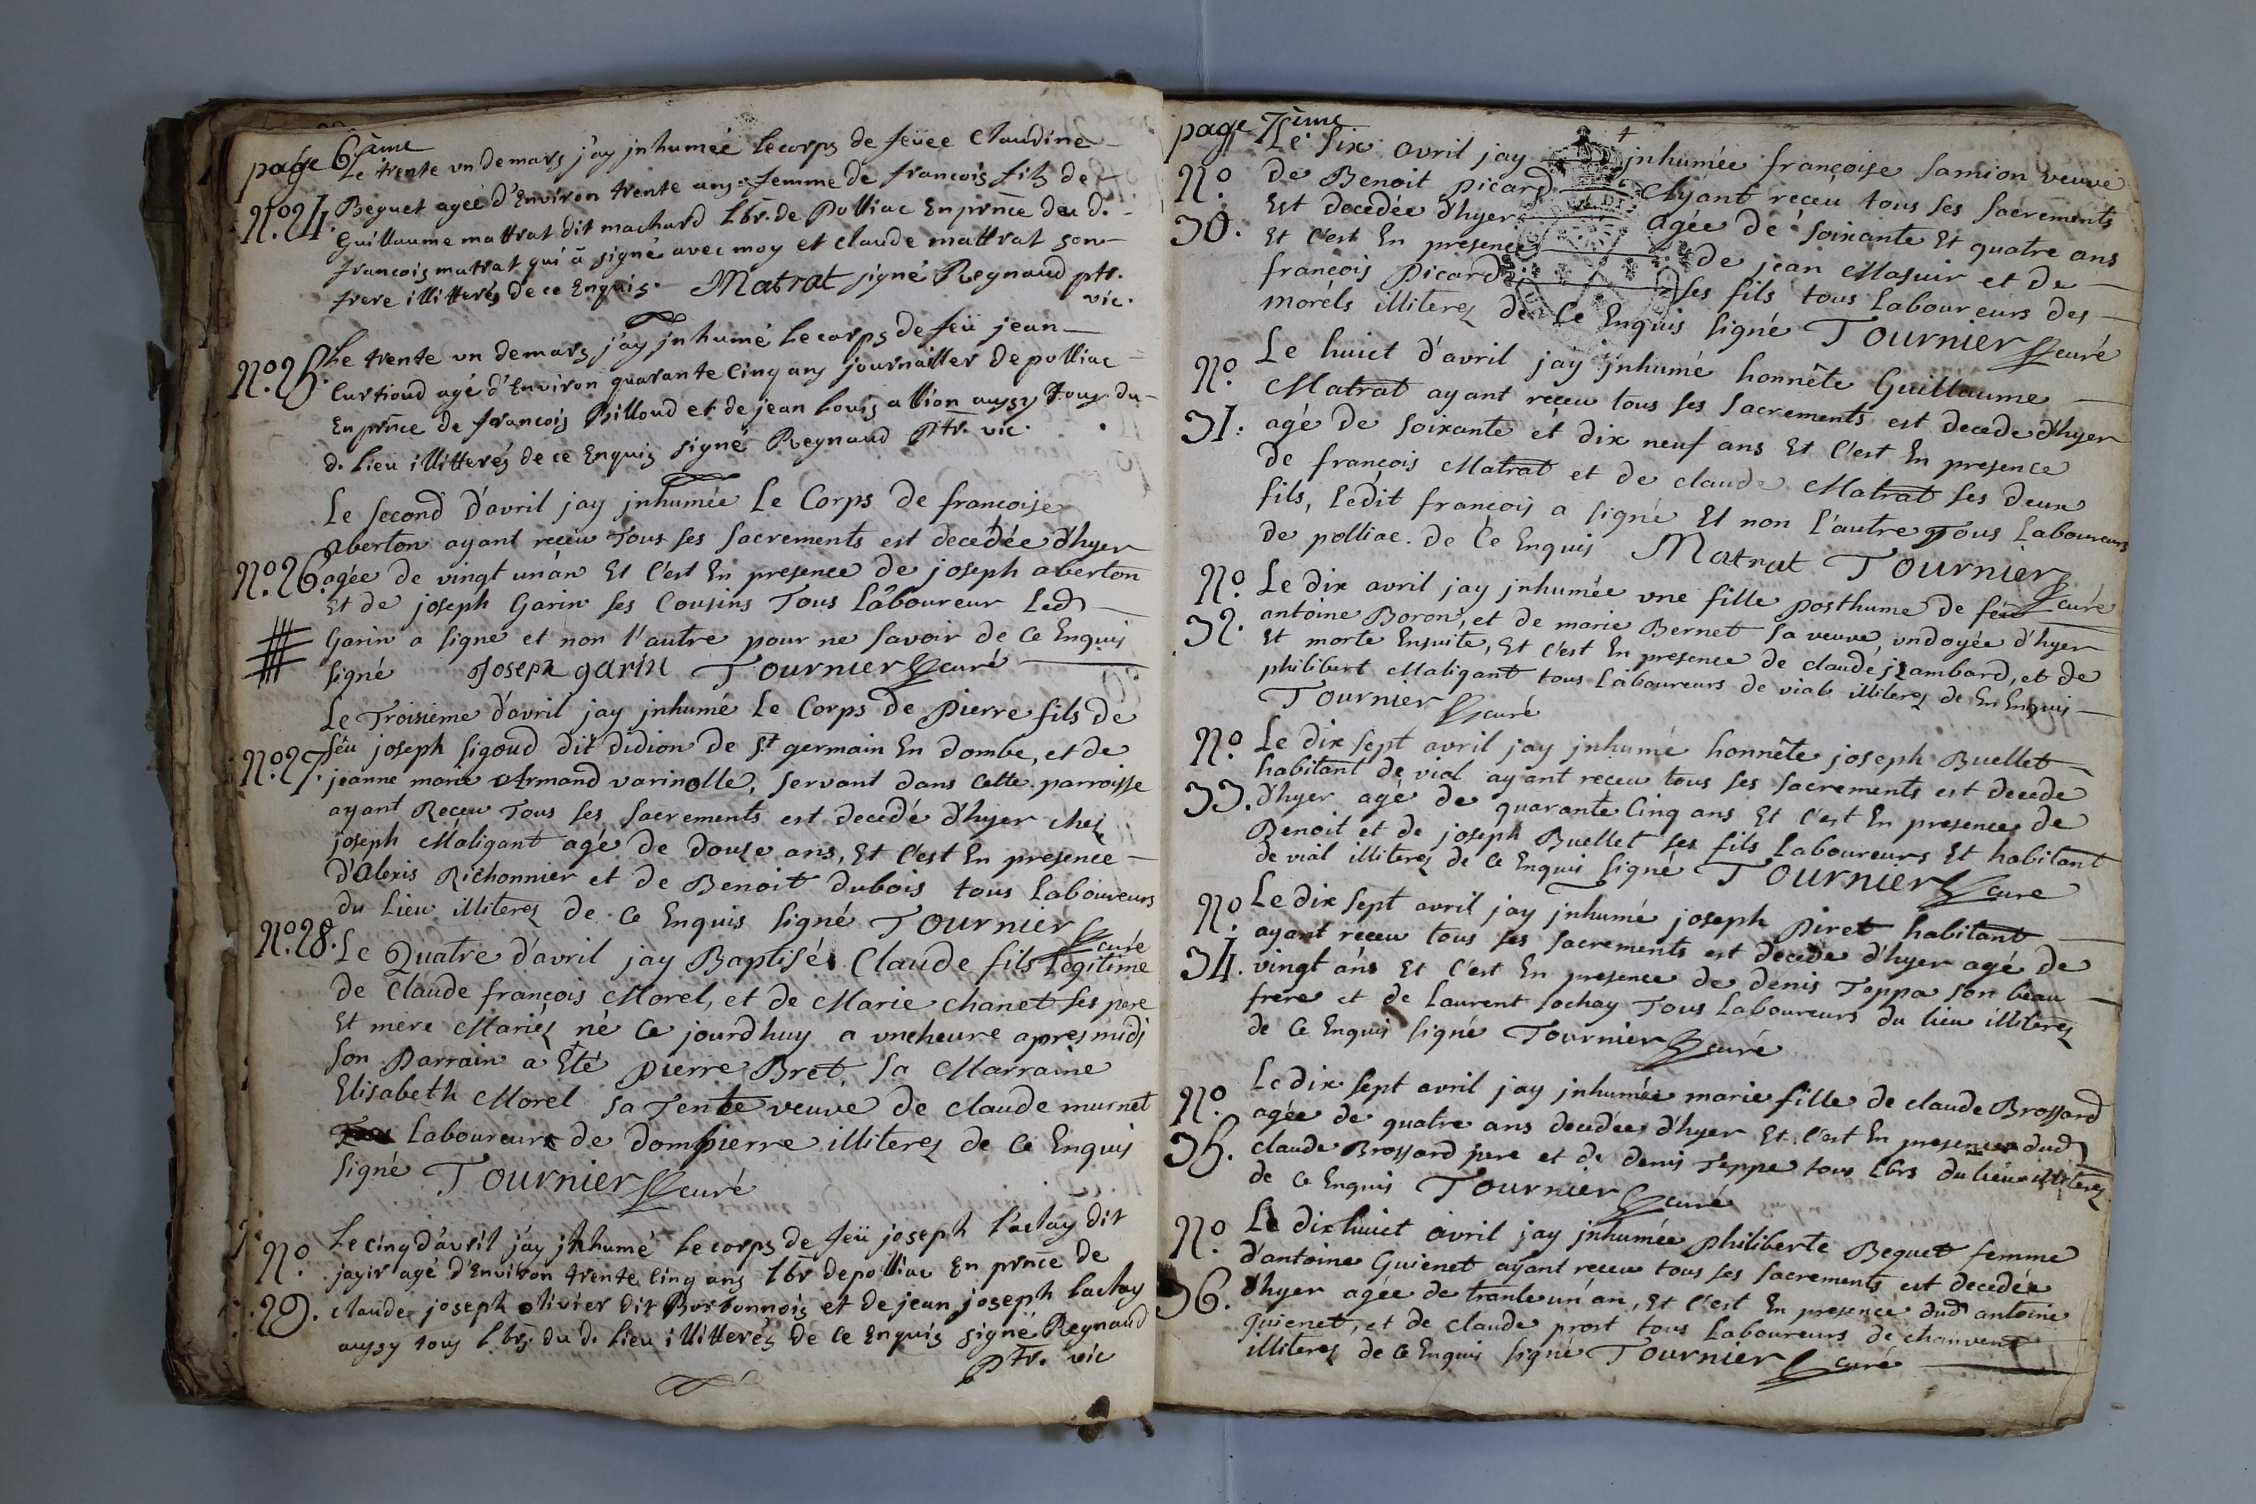 page 6ème
Le trente un de mars j'ay inhumée le corps de feüee Claudine
N.º 24. Beguet agée d'Environ trente ans femme de francois fils de
Guillaume mattrat dit machard lbr. de Polliac En prnce du d.
francois matrat qui a signé avec moy et claude mattrat son
frere illitterés de ce Enquis. Matrat signé Reynaud ptr.
vic.
Le trente un de mars j'ay inhumé le corps de feü jean
N.º 25. Curtioud agé d'Environ quarante cinq ans journallier de polliac
En prnce de francois Billoud et de jean louis allion aussy tous du
d. lieu illitterés de ce Enquis signé Reynaud Ptr. vic.
Le second d'avril jay inhumée Le Corps de francoise
aberton ayant reçeu Tous ses sacrements est decedée d'hyer
N.º 26. agée de vingt un'an Et C'est En presence de joseph aberton
Et de joseph Garin ses Cousins Tous Laboureur Led
Garin a signé et non l'autre pour ne savoir de Ce Enquis
signé Joseph garin Tournier curé
Le Troisième d'avril jay inhumé Le Corps de Pierre fils de
N.º 27. feu joseph sigoud dit didion de St germain En dombe, et de
jeanne marie Armand varinolle, servant dans Cette parroisse
ayant Reçeu Tous ses sacrements est decedé d'hyer chez
joseph Maligant agé de douze ans, Et C'est En presence
d'Alexis Richonnier et de Benoit dubois tous Laboureurs
du Lieu illiterez de Ce Enquis signé Tournier curé
N.º 28. Le Quatre d'avril jay Baptisé Claude fils Legitime
de Claude françois Morel, et de Marie chanet ses pere
Et mere Mariéz né Ce jourdhuy a une heure apres midi
son Parrain a Eté pierre Bret, sa Marraine
Elisabeth Morel sa Tente veuve de claude murnet
Laboureur de dompierre illiterez de Ce Enquis
signé Tournier curé
Le cinq d'avril j'ay inhumé le corps de feü joseph Lactay dit
N.º jayir agé d'Environ trente cinq ans lbr de polliac En prnce de
29. claude joseph olivier dit Borbonnois et de jean joseph Lactay
aussy tous lbrs du d. lieu illitterés de ce Enquis signé Reynaud
Ptr. vic
page 7ème
Le six avril jay inhumée françoise samion veuve
N.º de Benoit picard Ayant reçeu tous ses sacrements
Est decedée d'hyer agée de soixante Et quatre ans
30. Et C'est En presence de jean Masuir et de
françois Picard ses fils tous Laboureurs des
moréls illiterez de Ce Enquis signé Tournier curé
Le huict d'avril jay inhumé honnête Guillaume
N.º Matrat ayant reçeu tous ses sacrements est decede d'hyer
31. agé de soixante et dix neuf ans Et C'est En presence
de françois Matrat et de claude Matrat ses deux
fils, ledit françois a signé Et non l'autre Tous Laboureurs
de polliac. de Ce Enquis Matrat Tournier curé
N.º Le dix avril jay inhumée une fille posthume de feu
32. antoine Boron, et de marie Bernet sa veuve, undoyée d'hyer
Et morte Ensuite, Et C'est En presence de claude jambard, et de
philibert Maligant tous Laboureurs de vial illiterez de En Enquis
Tournier curé
N.º Le dix sept avril jay inhumé honnête joseph Buellet
habitant de vial ayant reçeu tous ses sacrements est decede
33. d'hyer agé de quarante Cinq ans Et C'est En presence de
Benoit et de joseph Buellet ses fils Laboureurs Et habitant
de vial illiterez de Ce Enquis signé Tournier curé
N.º Le dix sept avril jay inhumé joseph Piret habitant
ayant reçeu tous ses sacrements est decede d'hyer agé de
34. vingt ans Et C'est En presence de denis Teppa son beau
frere et de Laurent sochay Tous Laboureurs du lieu illiterez
de Ce Enquis signé Tournier curé
Le dix sept avril jay inhumée marie fille de claude Brossard
N.º agée de quatre ans decedée d'hyer Et C'est En presence dud
35. claude Brossard pere et de denis Teppe tous Lbrs du lieu illiterez
de Ce Enquis Tournier curé
N.º Le dix huict avril jay inhumée philiberte Beguet femme
d'antoine Guienet ayant reçeu tous ses sacrements est decedée
36. d'hyer agée de trante un'an, Et C'est En presence dud antoine
guienet, et de claude prost tous Laboureurs de chanvent
illiterez de Ce Enquis signé Tournier curé